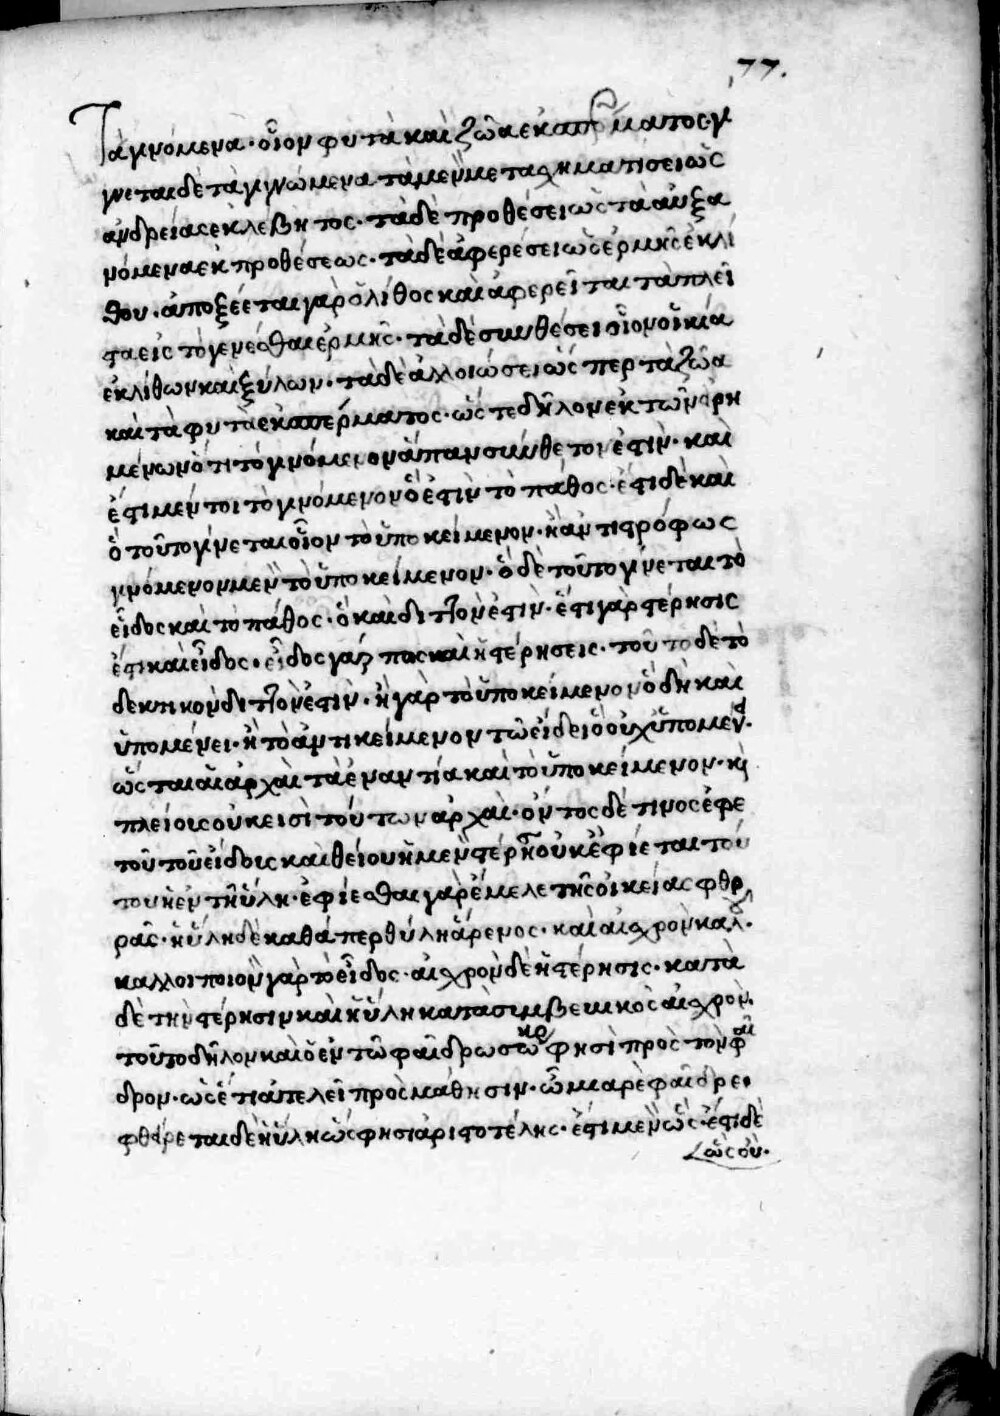 77.
Τὰ γινόμενα· οἷον φυτὰ καὶ ζῶα ἐκ σπέρματος· γί
γνεται δὲ τὰ γιγνώμενα τὰ μὲν μετασχηματίσει ὡς
ἀνδρείας ἐκ λέβητος· τὰ δὲ προθέσει ὡς τὰ αὐξα
νόμενα ἐκ προθέσεως· τὰ δὲ ἀφερέσει ὡς ἑρμῆς ἐκ λί
θου· ἀποξέεται γὰρ ὁ λίθος καὶ ἀφερεῖται τὰ πλεῖ
στα εἰς τὸ γενέσθαι ἑρμῆς· τὰ δὲ συνθέσει οἷον οἰκία
ἐκ λίθων καὶ ξύλων· τὰ δὲ ἀλλοιώσει ὥς περ τὰ ζῶα
καὶ τὰ φυτὰ ἐκ σπέρματος· ὥς τε δῆλον ἐκ τῶν εἰρη
μένων ὅτι τὸ γινόμενον ἅπαν σύνθετον ἐστὶν· καὶ
ἔστι μέν τοι τὸ γινόμενον ὅ ἐστὶν τὸ πάθος· ἔστι δὲ καὶ
ὃ τοῦτο γίνεται οἷον τὸ ὑποκείμενον· ἢ ἀντιστρόφως
γινόμενον μὲν τὸ ὑποκείμενον· ὃ δὲ τοῦτο γίνεται τὸ
εἶδος καὶ τὸ πάθος· ὃ καὶ διττὸν ἐστὶν· ἔστι γὰρ στέρησις
ἐστι καὶ εἶδος· εἶδος γάρ πως καὶ ἡ στέρησεις· τοῦτο δὲ τὸ
δεκτικὸν διττὸν ἐστὶν· ἢ γὰρ τὸ ὑποκείμενον ὃ δὴ καὶ
ὑπομένει· ἢ τὸ ἀντικείμενον τῶ εἴδει ὃ οὐχ ὑπομέν·
ὥς ται αἱ ἀρχαὶ τὰ ἐναντία καὶ τὸ ὑποκείμενον· κὶ
πλείοις οὐκ εἰσὶ τούτων ἀρχαὶ· ὄντος δέ τινος ἐφε
τοῦ τοῦ εἴδοις καὶ θείου ἡ μὲν στέρησις οὐκ ἐφίεται τού
του ἡ ἐν τῆ ὕλη· ἐφίεσθαι γὰρ ἔμελε τῆς οἰκείας φθο
ρᾶς· ἡ ὕλη δὲ καθάπερ θύλη ἄρενος· καὶ αἰσχρὸν καλ·
καλλοιποιὸν γὰρ τὸ εἶδος· αἰσχρὸν δὲ ἡ στέρησις· κατὰ
δὲ τὴν στέρησιν καὶ ἡ ὕλη κατὰ σιμβεικὸς αἰσχρὸν·
τοῦτο δῆλον καὶ ὁ ἐν τῶ φαίδρω σωκρ φησὶ πρὸς τὸν φαῖ
δρον· ὡς ἔτι ἀτελεῖ πρὸς μάθησιν· ὦ μιαρὲ φαῖδρε·
φθείρεται δὲ ἡ ὕλη ὥς φησι ἀριστοτέλης· ἔστι μὲν ὥς· ἔστι δὲ
ὥς οὐ·